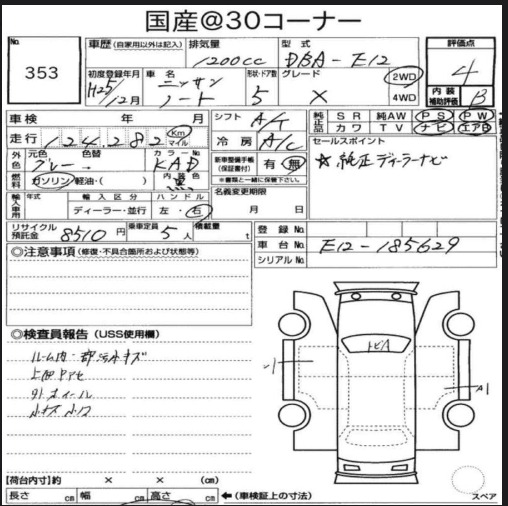 国産@30コーナー
No.
353
車歴 (自家用以外は記入)
排気量
1200cc
型式
DBA-E12
評価点
4
初度登録年月
H25/12月
車名
ニッサン
ノート
形状・ドア数
5
グレード
X
2WD
4WD
内装
補助評価
B
車検 年 月
走行 124,282 Km マイル
シフト A/T
冷房 A/C
純正品
SR 純AW PS PW
カワ TV ナビ エアB
外色
元色
グレー
色替
カラーNo.
KAD
燃料
ガソリン・軽油・( )
内装色
黒
新車整備手帳
(保証書付)
有・無
※書類と一緒に保管下さい。
セールスポイント
☆純正ディーラーナビ
輸入車用
年式
輸入区分
ディーラー・並行
ハンドル
左・右
名義変更期限
月 日
リサイクル
預託金
8510円
乗車定員
5人
積載量
t
登録No.
車台No. E12-185629
シリアルNo.
◎注意事項 (修復・不具合箇所および状態等)
◎検査員報告 (USS使用欄)
トビA
A1
小キズ 小凹
【荷台内寸】約 × × (cm)
長さ cm 幅 cm 高さ cm
←(車検証上の寸法)
スペア